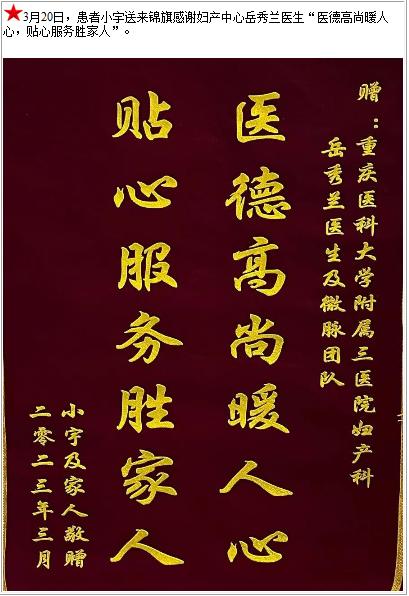 ★3月20日，患者小宇送来锦旗感谢妇产中心岳秀兰医生“医德高尚暖人
心，贴心服务胜家人”。
赠：重庆医科大学附属三医院妇产科
岳秀兰医生及微脉团队
医德高尚暖人心
贴心服务胜家人
小宇及家人敬赠
二零二三年三月